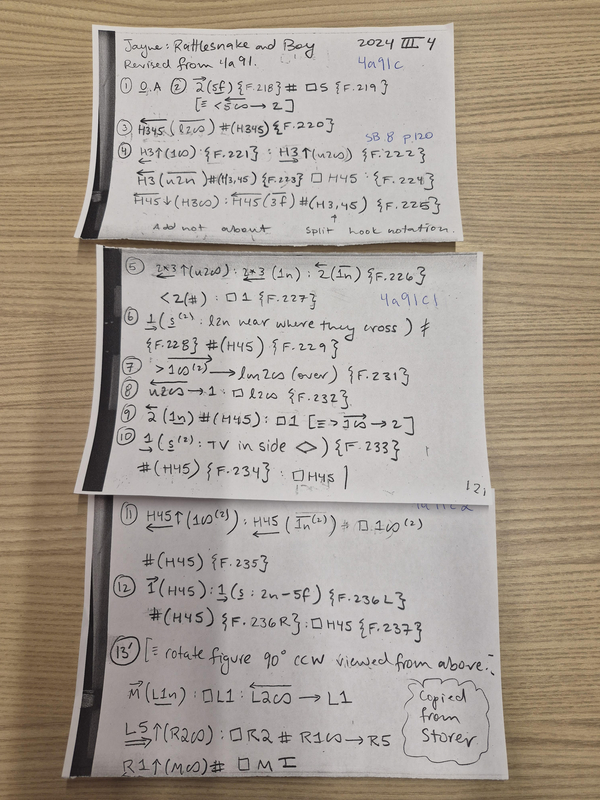 Jayne: Rattlesnake and Boy 2024 III 4
Revised from 4a91. 4a91c
① O.A ② 2⃗(5f) {F.218} # □5 {F.219}
[≡ <5∞⃖ → 2]
③ H345⃖ (l2∞) #(H345) {F.220}
SB 8 p.120
④ H3↑(1∞) : {F.221} : H3↑(u2∞) {F.222}
H3⃖(u2n) #(H3,45) {F.223} □ H45 : {F.224}
H45⃖↓(H3∞) : H45⃖(3f) #(H3,45) {F.225}
Add not about split hook notation.
⑤ 2*3↑(u2∞) : 2*3 (1n) : 2⃖(1n) {F.226}
<2(#) : □1 {F.227} 4a91c1
⑥ 1(s⁽²⁾ : l2n near where they cross) #
{F.228} #(H45) {F.229}
⑦ >1∞⁽²⁾ → lm2∞ (over) {F.231}
⑧ u2∞⃖ → 1 : □ l2∞ {F.232}
⑨ 2⃖(1n) #(H45) : □1 [≡ >1∞⃗ → 2]
⑩ 1(s⁽²⁾ : TV in side ◇) {F.233}
#(H45) {F.234} : □H45 |
121
⑪ H45↑(1∞⁽²⁾) : H45 (1n⁽²⁾) # □ 1∞⁽²⁾
#(H45) {F.235}
⑫ 1⃗(H45) : 1(s : 2n-5f) {F.236L}
#(H45) {F.236R} : □H45 {F.237}
⑬' [≡ rotate figure 90° ccw viewed from above:
M⃗(L1n) : □L1 : L2∞⃖ → L1
Copied
from
Storer
L5↑(R2∞) : □R2 # R1∞ → R5
R1↑(M∞)# □ M I